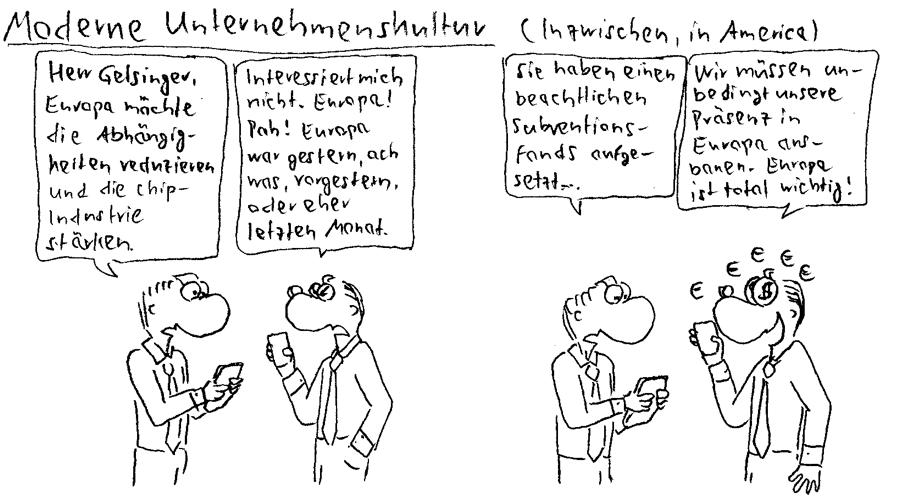 Moderne Unternehmenskultur (Inzwischen, in America)
Herr Gelsinger,
Europa möchte
die Abhängig-
keiten reduzieren
und die Chip-
Industrie
stärken.
Interessiert mich
nicht. Europa!
Pah! Europa
war gestern, ach
was, vorgestern,
oder eher
letzten Monat.
Sie haben einen
beachtlichen
Subventions-
fonds aufge-
setzt...
Wir müssen un-
bedingt unsere
Präsenz in
Europa aus-
bauen. Europa
ist total wichtig!
€ € € € €
$